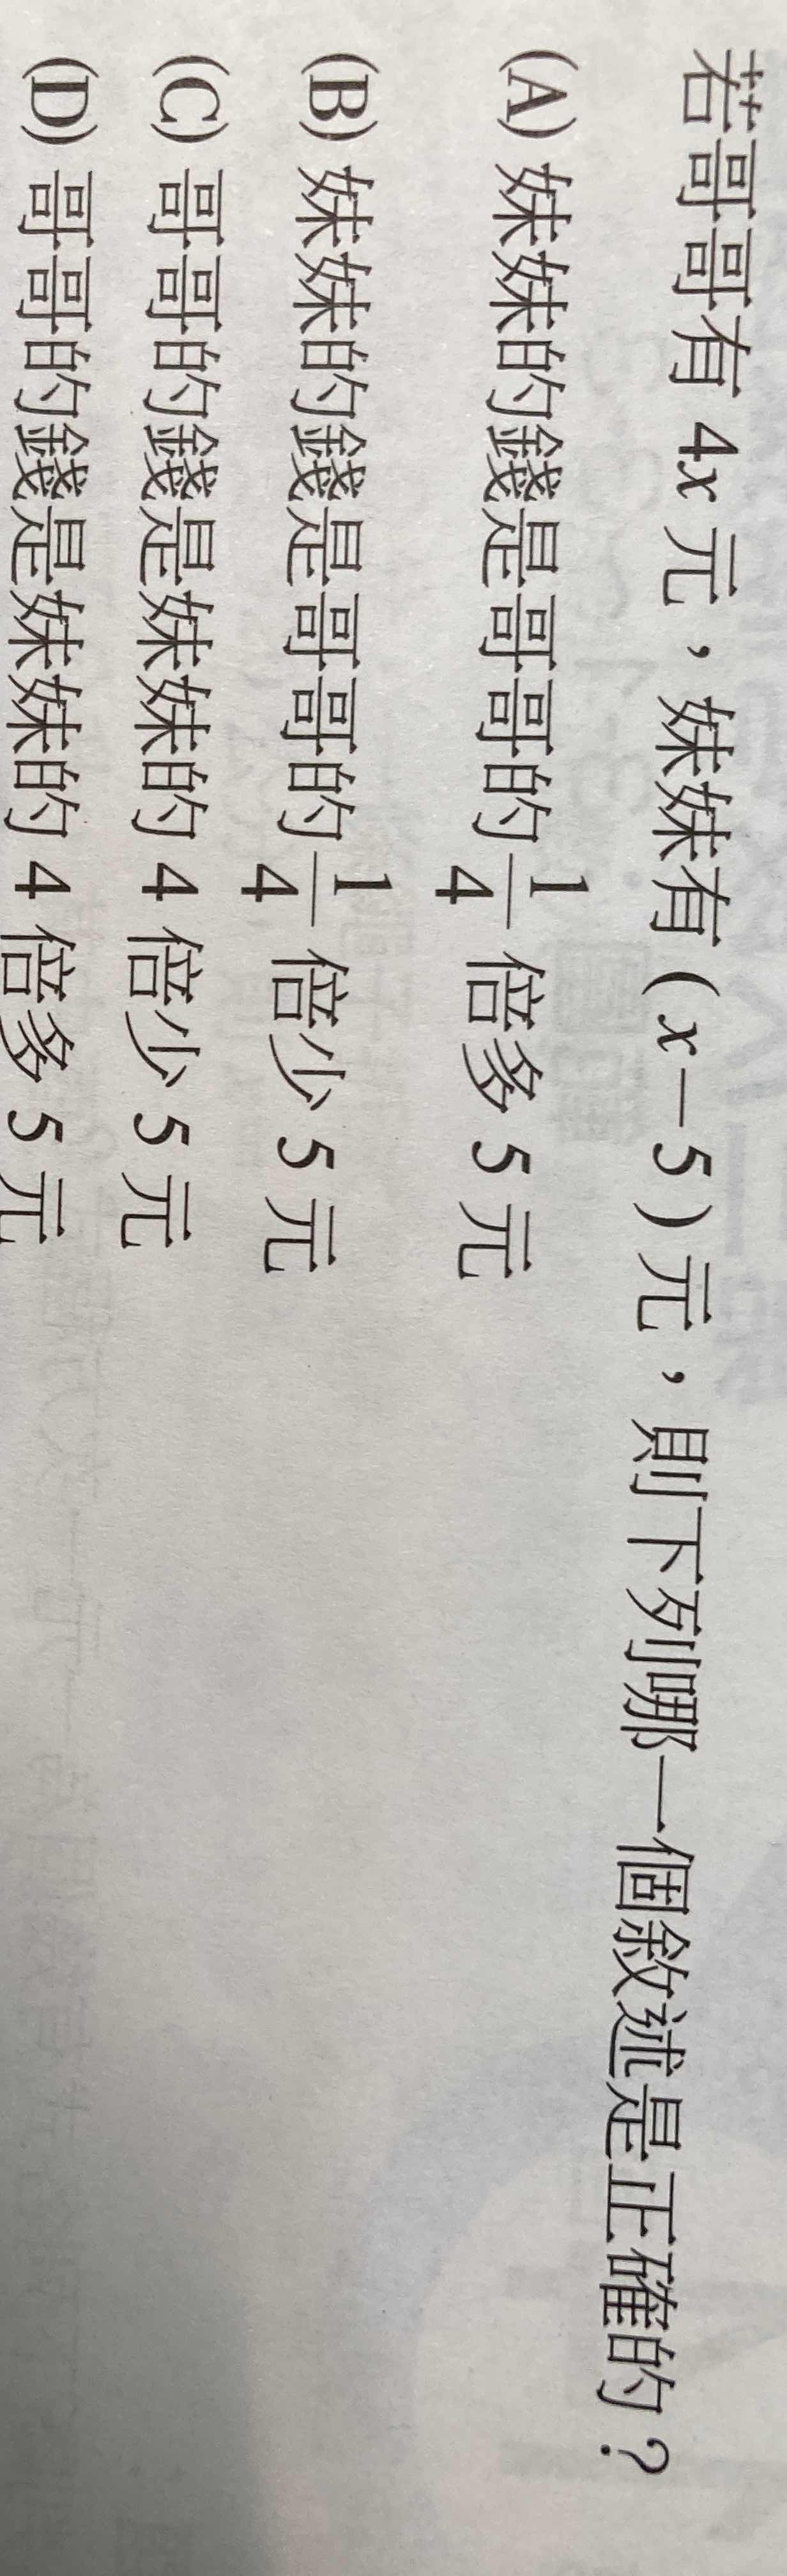 若哥哥有 4x 元，妹妹有 (x－5) 元，則下列哪一個敘述是正確的？
(A) 妹妹的錢是哥哥的 1/4 倍多 5 元
(B) 妹妹的錢是哥哥的 1/4 倍少 5 元
(C) 哥哥的錢是妹妹的 4 倍少 5 元
(D) 哥哥的錢是妹妹的 4 倍多 5 元